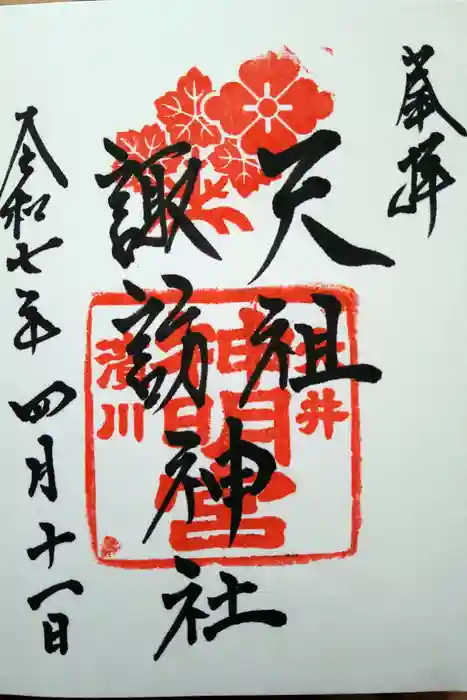 奉拝
天祖
諏訪神社
令和七年四月十一日
神明宮
濱川